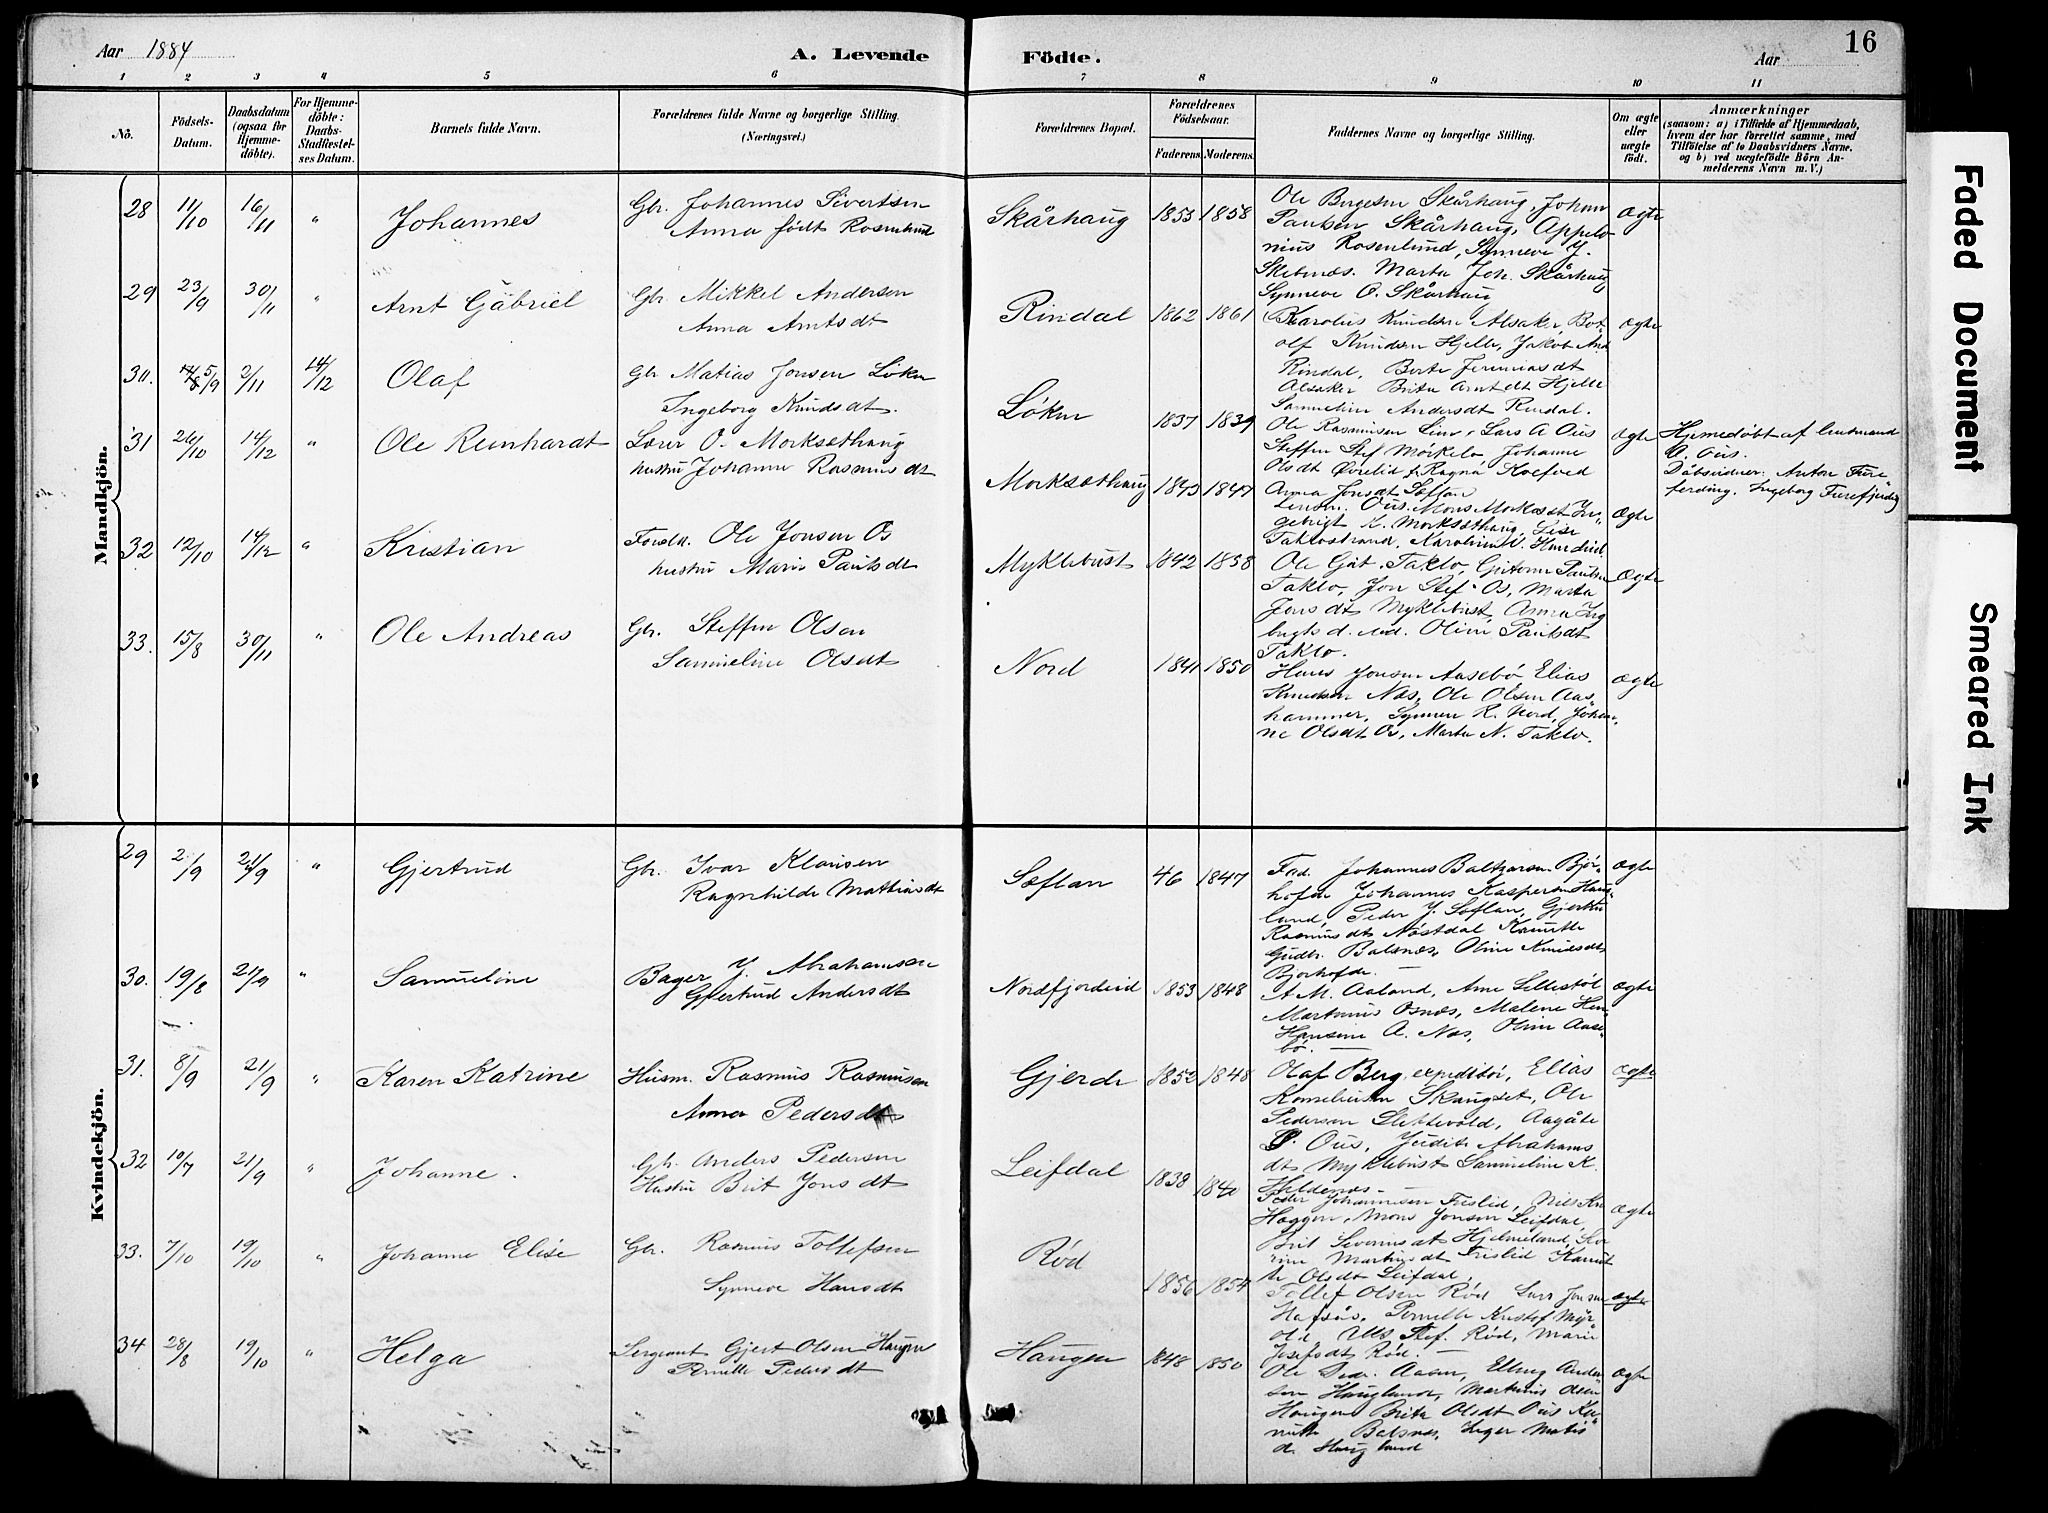 Aar 1884
A. Levende
Födte.
Aar
16
1 2 3 4 5 6 7 8 9 10 11
No.
Födsels-
Datum.
Daabsdatum
(ogsaa for
Hjemme-
döbte).
For Hjemme-
döbte:
Daabs-
Stadfæstel-
ses Datum.
Barnets fulde Navn.
Forældrenes fulde Navne og borgerlige Stilling.
(Næringsvei.)
Forældrenes Bopæl.
Forældrenes
Födselsaar.
Faderens. Moderens.
Faddernes Navne og borgerlige Stilling.
Om ægte
eller
uægte
födt.
Anmærkninger
(saasom: a) i Tilfælde af Hjemmedaab,
hvem der har forrettet samme, med
Tilföielse af to Daabsvidners Navne.
og b) ved uægtefödte Börn An-
melderens Navn m. V.)
Mandkjön.
28 11/10 16/11 " Johannes Gbr. Johannes Sivertsen
Anna født Rosenlund
Skårhaug 1853 1858 Ole Børgesen Skårhaug, Johan
Paulsen Skårhaug, Appelo-
nius Rosenlund, Synneve J.
Skibenes. Marta Joh. Skårhaug
Synneve O. Skårhaug
Ægte
29 23/9 30/11 " Arnt Gabriel Gbr. Mikkel Andersen
Anna Arntsdt
Rindal 1862 1861 Karolus Knudsen Alsaker, Bot-
olf Knudsen Hjelle, Jakob And
Rindal, Berte Jeremiasdt
Alsaker Brita Arntdt Hjelle
Sammeline Andersdt Rindal.
Ægte
30. 5/9 2/11 14/12 Olaf Gbr Matias Jonsen Løken
Ingeborg Knudsdt.
Løken 1837 1839 Ole Rasmusen Lim, Lars A Ous
Steffen Stef Morkelo, Johanne
Olsdt Øvrelid, Ragna Koefoed
Anna Jonsdt Sæftan
Ægte
31 26/10 14/12 " Ole Reinhardt Lærer O. Morksæthaug
hustru Johanne Rasmusdt
Morksæthaug 1843 1847 Lensm. Ous. Mons Morkeset In-
gebrigt K. Morksæthaug, Lise
Taklostrand,
Ægte
Hjemedøbt af lensmand
A. Ous.
Dåbsvidner: Anton Fure-
ferding. Ingeborg Furefjerding
32 12/10 14/12 " Kristian Forstk. Ole Jonsen Os
hustru Marie Paulsdt
Myklebust 1842 1858 Ole Gut. Taklo, Guttorm Paulsen
Taklo, Jon Stef. Os, Marta
Jonsdt Myklebust, Anna Ing
Oline Paulsdt
Taklo.
Ægte
33. 15/8 30/11 " Ole Andreas Gbr. Steffen Olsen
Sammeline Olsdt
Nord 1841 1850 Hans Jonsen Aasebø Elias
Knudsen Nos, Ole Olsen Aas-
hammer, Synneve R. Nord, Johan-
ne Olsdt Os, Marta N. Taklo.
Ægte
Kvindekjön.
29 2/9 21/9 " Gjertrud Gbr. Ivar Klausen
Ragnhilde Mattiasdt
Sæftan 46 1847 Fad. Johannes Baltzersen Bjør-
hofde Johannes Kaspersen Haug-
land, Peder J. Sæftan, Gjertru
Rasmusdt Nøstdal Kanutte
Gudbr. Balsnes, Oline Knudsdt
Bjørhofde. —
Ægte
30. 19/8 21/9 " Sammeline Bager J. Abrahamsen
Gjertrud Andersdt
Nordfjordeid 1853 1848 A. M. Aaland, Arne Lillestøl
Martinus Osnæs, Malene Hen-
Hansine A. Nos, Oline Aase-
bø. —
Ægte
31. 8/9 21/9 " Karen Katrine Husm. Rasmus Rasmusen
Anna Pedersdt
Gjerde 1852 1848 Olaf Berg, expeditør, Elias
Korneliusen Skaugset, Ole
Pedersen Slettevold, Aagåte
P. Ous, Judit Abrahams
dt Myklebust Sammeline K.
Heldenes. —
Ægte
32 10/7 21/9 " Johanne. Gbr. Anders Pedersen
Hustru Brit Jonsdt
Leifdal 1838 1840 Peder Johannesen Frislid, Nils Kn
Haggen, Mons Jonsen Leifdal,
Brit Severinsdt Hjelmeland,
Martinsdt Frislid Kanut
te Olsdt Leifdal.
Ægte
33. 7/10 19/10 " Johanne Elise Gbr. Rasmus Tollefsen
Synneve Hansdt
Rød 1856 1854 Tollef Olsen Rød Lars Jonsen
Hafsås, Pernille Kristof Myr-
old Stef. Rød, Marie
Josefsdt Rød. —
Ægte
34 28/8 19/10 " Helga Sergeant Gjert Olsen Haugen
Pernille Pedersdt
Haugen 1848 1850 Ole Aasen, Elling Ander-
sen Hauglund, Martinus Olsen
Haugen Brita Olsdt Ous Ka-
nutte Balsnes,
d. Hauglund
Ægte
Faded Document
Smeared Ink